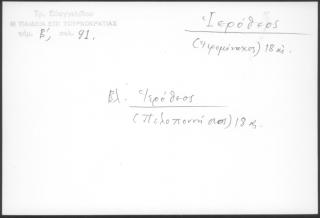 Τρ. Εὐαγγελίδου
Η ΠΑΙΔΕΙΑ ΕΠΙ ΤΟΥΡΚΟΚΡΑΤΙΑΣ
τόμ. Β', σελ. 91.
Ἱερόθεος
(Ἱερομόναχος) 18 αἰ.
Βλ. Ἱερόθεος
(Πελοποννήσιος) 18 αἰ.